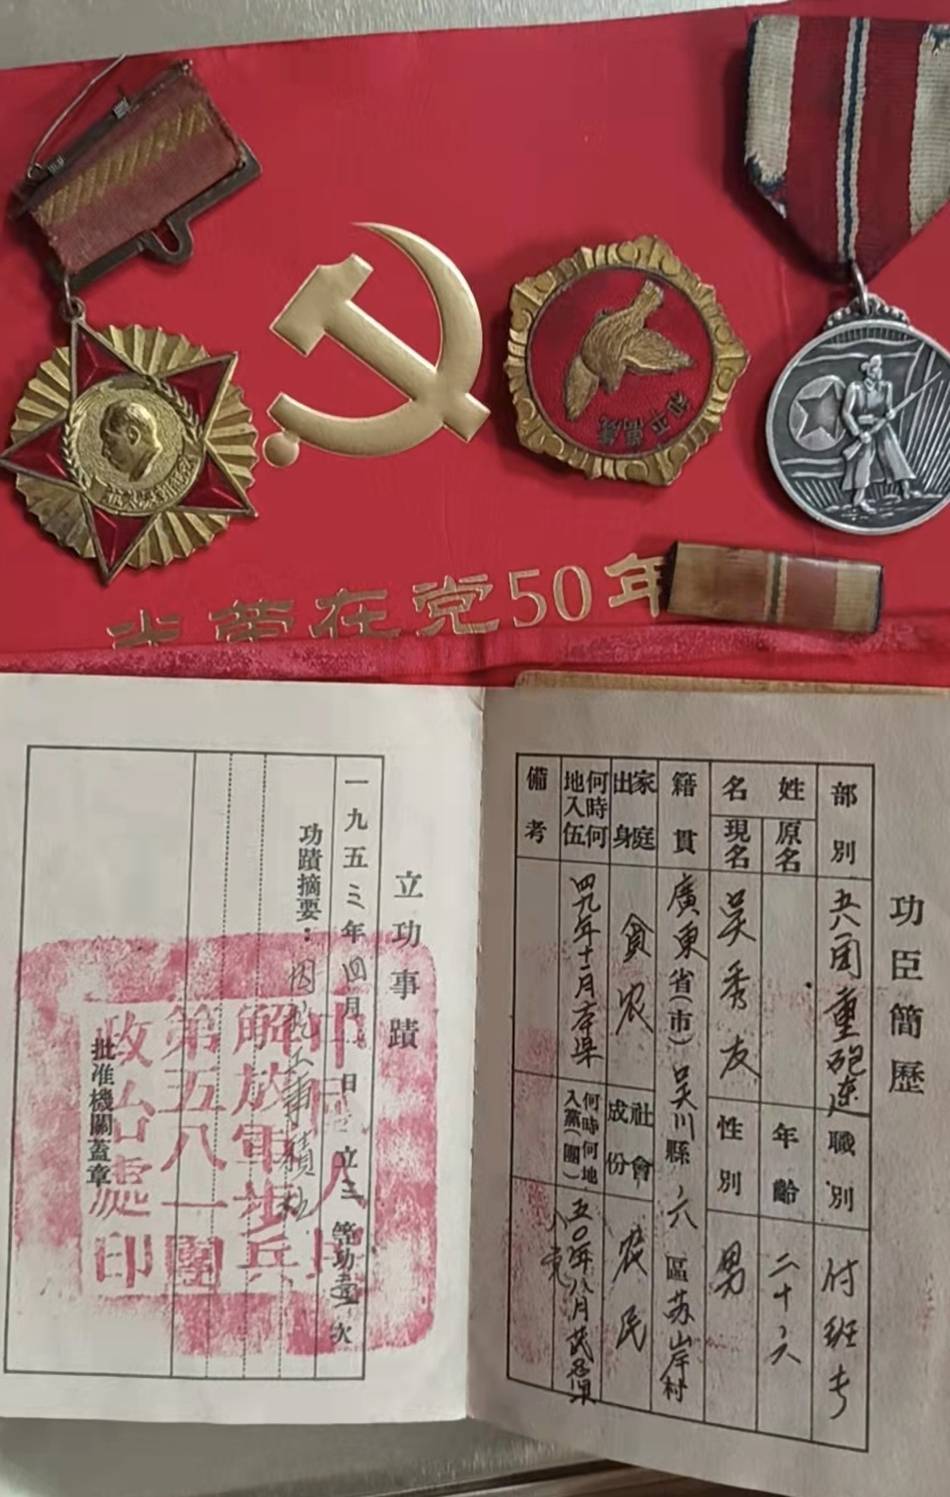 光荣在党50年
和平萬歲
功臣簡歷
部別 五八一團重砲連 職別 付班长
姓名 原名 年齡 二十六
現名 吴秀友 性別 男
籍貫 廣東省(市)吴川縣六區苏岸村
家庭出身 貧农 社會成份 农民
何時何地入伍 四九年十二月 何時何地入黨(團) 五〇年八月 入党
備考
立功事蹟
一九五三年四月 日立三等功壹次
功蹟摘要:
批准機關蓋章
中國人民解放軍步兵第五八一團政治處印